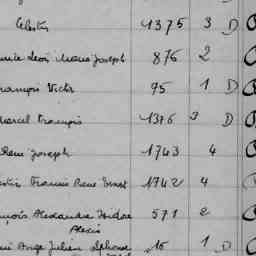 Celestin 1375 3 D
Léon Marie Joseph 876 2
François Victor 95 1 D
Marcel François 1376 3 D
René Joseph 1743 4
Francis René Ernest 1742 4
Alexandre Isidore 571 2
Alexis
Ange Julien Alphonse 16 1 D